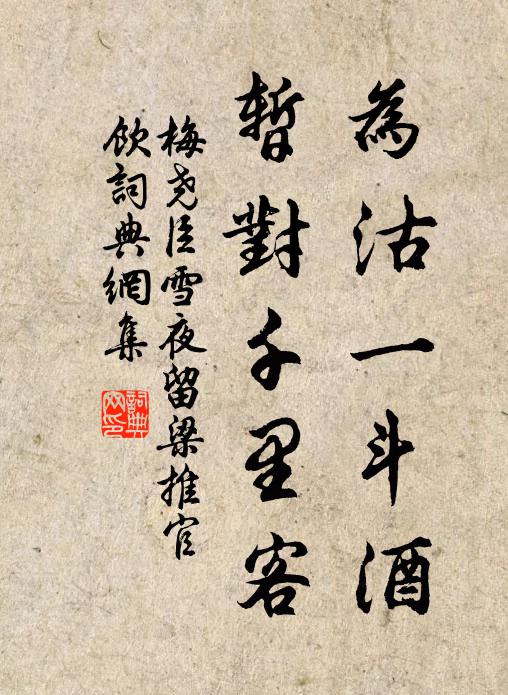 為沽一斗酒
暫對千里客
梅堯臣雪夜留梁推官
飲詞典網集
詞典
网印